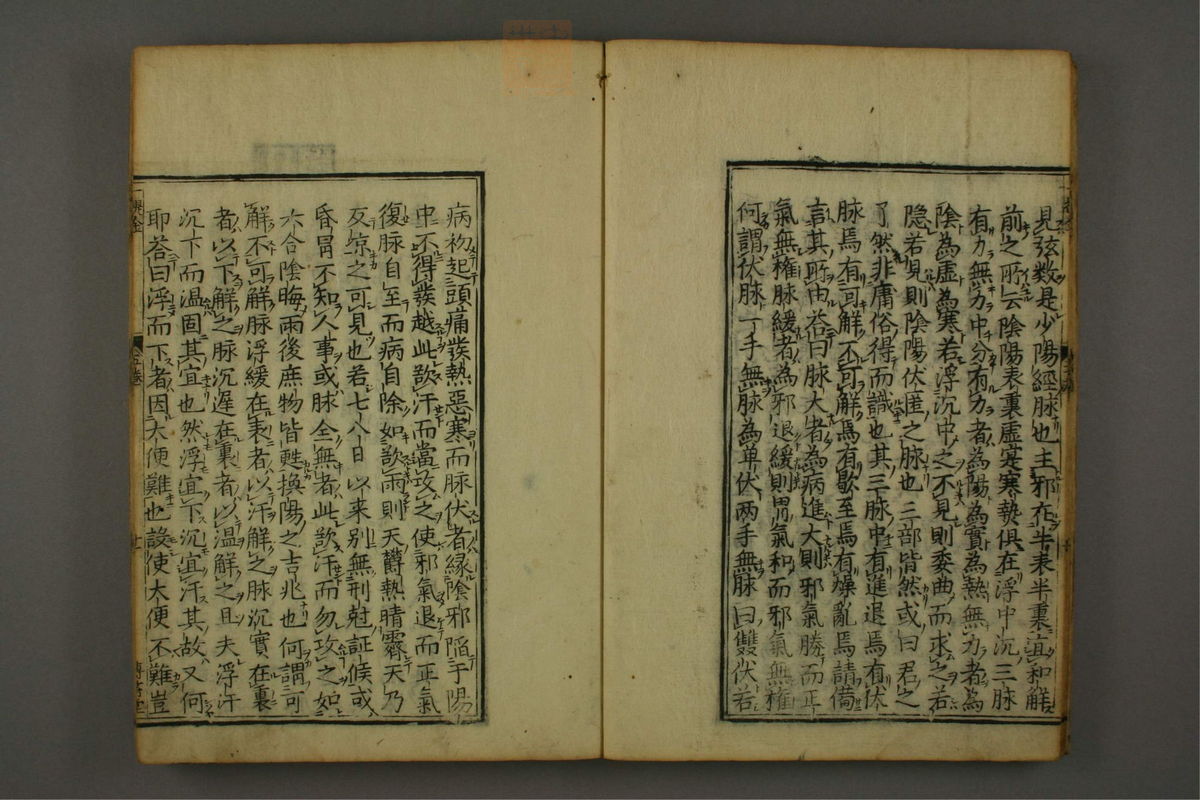 見弦数是少陽經脉也主邪在半表半裏宜和解
前之所云陰陽表裏虛寔寒熱俱在浮中沉三脉
有力無力中分有力者為陽為實為熱無力者為
陰為虛為寒若浮沉中之不見則委曲而求之若
隱若見則陰陽伏匿之脉也三部皆然或曰君之
了然非庸俗得而識也其三脉中有進退焉有伏
脉焉有可解不可解焉有歇至焉有燥亂焉請備
言其所由荅曰脉大者為病進大則邪氣勝而正
氣無權脉緩者為邪退緩則胃氣和而邪氣無權
何謂伏脉一手無脉為单伏两手無脉曰雙伏若
病初起頭痛發熱惡寒而脉伏者縁陰邪陷于陽
中不得發越此欲汗而當攻之使邪氣退而正氣
復脉自至而病自除如欲雨則天欝熱晴霽天乃
反凉之可見也若七八日以来别無刑尅証候或
昏冒不知人事或脉全無者此欲汗而勿攻之如
六合陰晦雨後庶物皆甦換陽之吉兆也何謂可
解不可解脉浮緩在表者以汗解之脉沉實在裏
者以下解之脉沉遲在裏者以温解之且夫浮汗
沉下而温固其宜也然浮宜下沉宜汗其故又何
耶荅曰浮而下者因大便難也設使大便不難豈